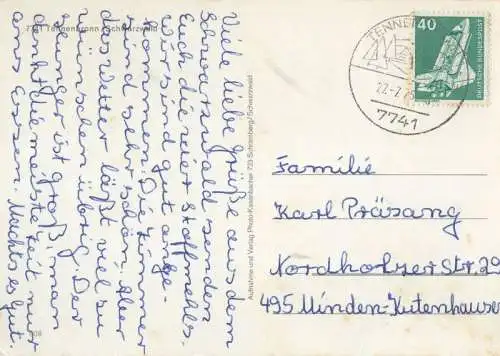 7741 Tennenbronn / Schwarzwald
Viele liebe Grüße aus dem
Schwarzwald senden
Euch die vier Stoffmehls.
Wir sind gut ange-
kommen. Die Zimmer
sind sehr schön. Aber
das Wetter läßt viel zu
wünschen übrig. Der
Hunger ist groß, man
denkt die meiste Zeit nur
ans Essen. Machts gut.
Aufnahme und Verlag Photo-Kaisenbacher 723 Schramberg/Schwarzwald
TENNE
7741
40
DEUTSCHE BUNDESPOST
Familie
Karl Präsang
Nordholzer Str. 29
495 Minden-Kutenhausen